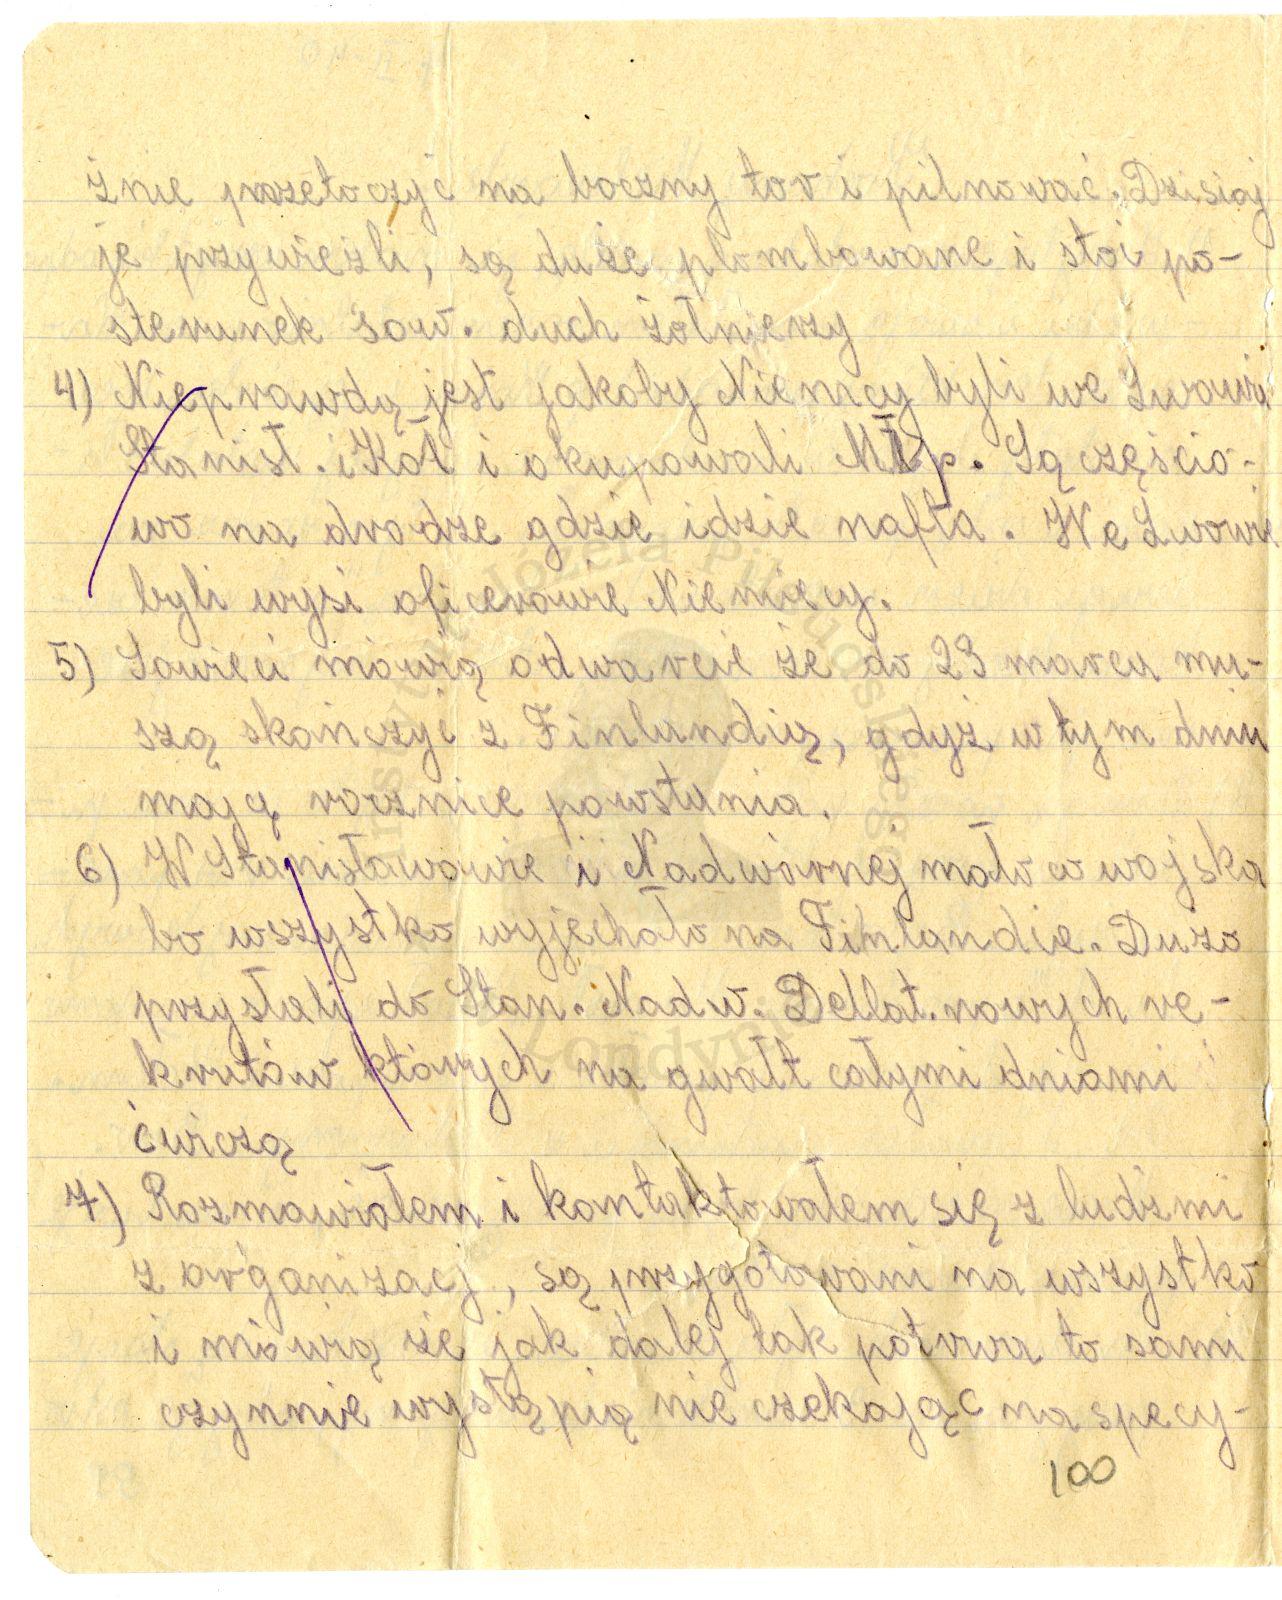 żnie przetoczyć na boczny tor i pilnować. Dzisiaj
je przywieźli, są duże plombowane i stoi po-
sterunek sow. duch żołnierzy
4) Nieprawdą jest jakoby Niemcy byli we Lwowie
Stanisł. i Koł i okupowali Młp. Są częścio-
wo na drodze gdzie idzie nafta. We Lwowie
byli wyżsi oficerowie Niemiecy.
5) Sowieci mówią odwarcie że do 23 marcu mu-
szą skończyć z Finlandią, gdyż w tym dniu
mają rocznice powstania.
6) W Stanisławowie i Nadwórnej mało w wojska
bo wszystko wyjechało na Finlandie. Dużo
przysłali do Stan. Nadw. Dellat. nowych re-
krutów których na gwałt całymi dniami
ćwiczą
7) Rozmawiałem i kontaktowałem się z ludźmi
z organizacj, są przygotowani na wszystko
i mówią że jak dalej tak potrwa to sami
czynnie wystąpią nie czekając na specy-
100
Instytut Józefa Piłsudskiego
Londyn